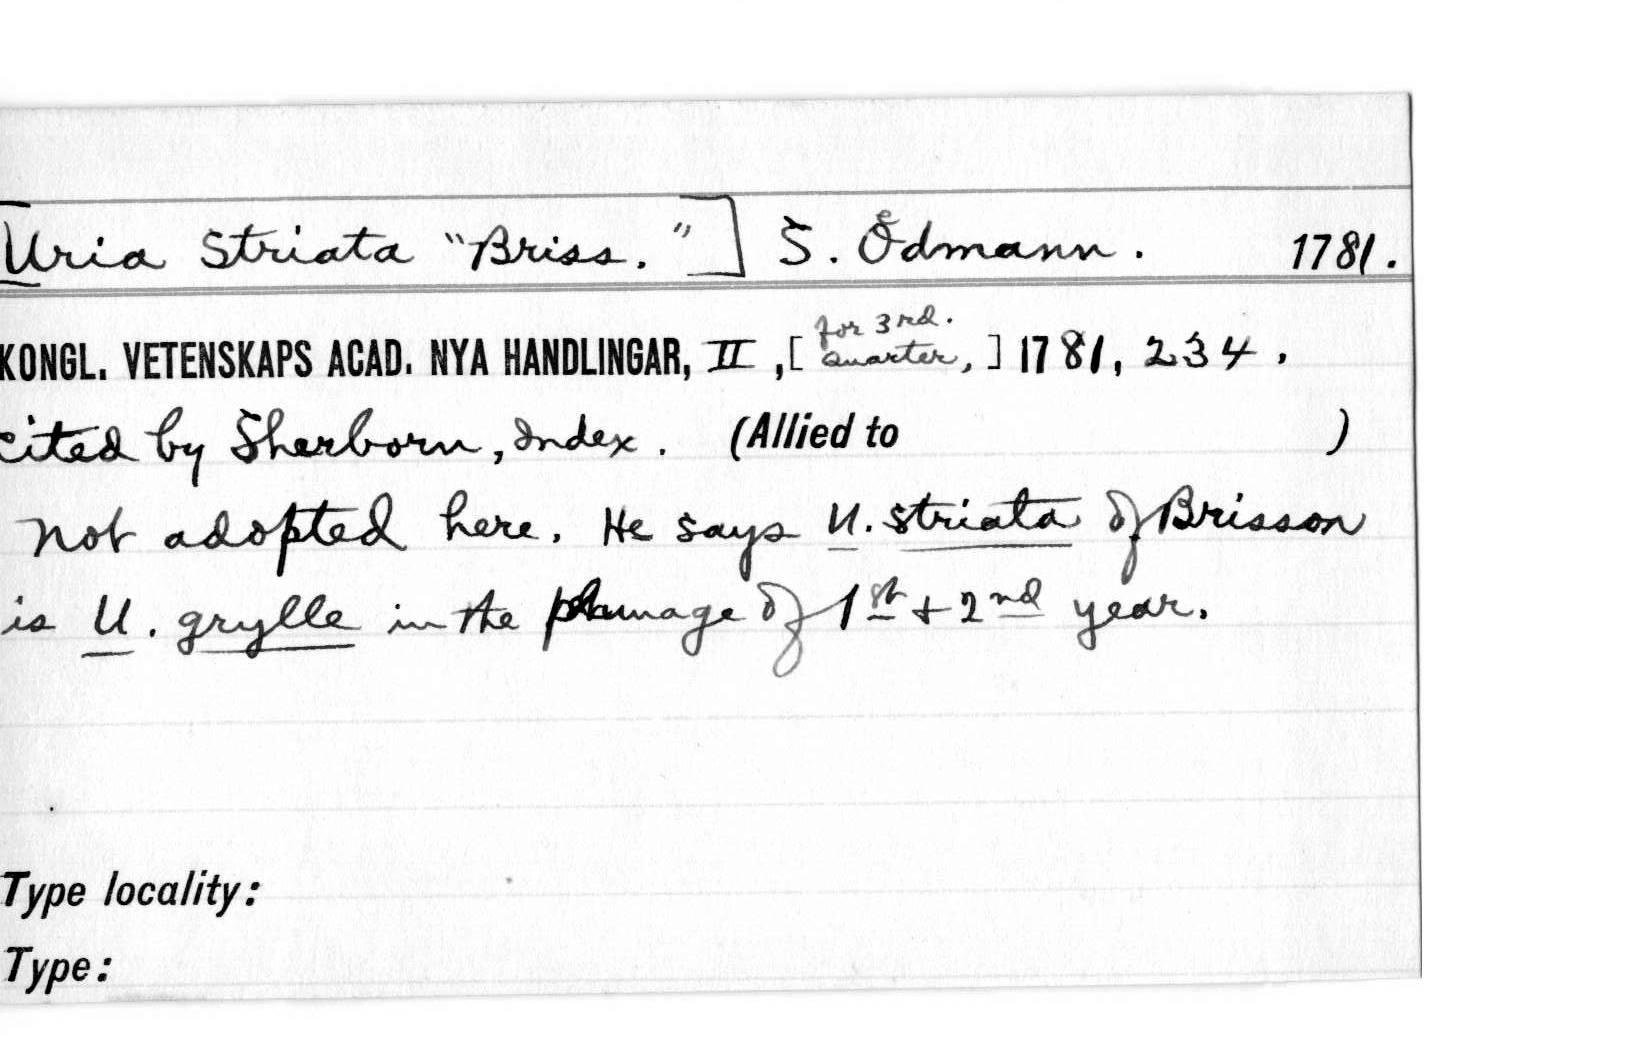 [Uria striata "Briss."] S. Ödmann. 1781.
KONGL. VETENSKAPS ACAD. NYA HANDLINGAR, II, [for 3rd. quarter,] 1781, 234.
cited by Sherborn, Index. (Allied to )
Not adopted here. He says U. striata of Brisson
is U. grylle in the plumage of 1st + 2nd year.
Type locality:
Type: